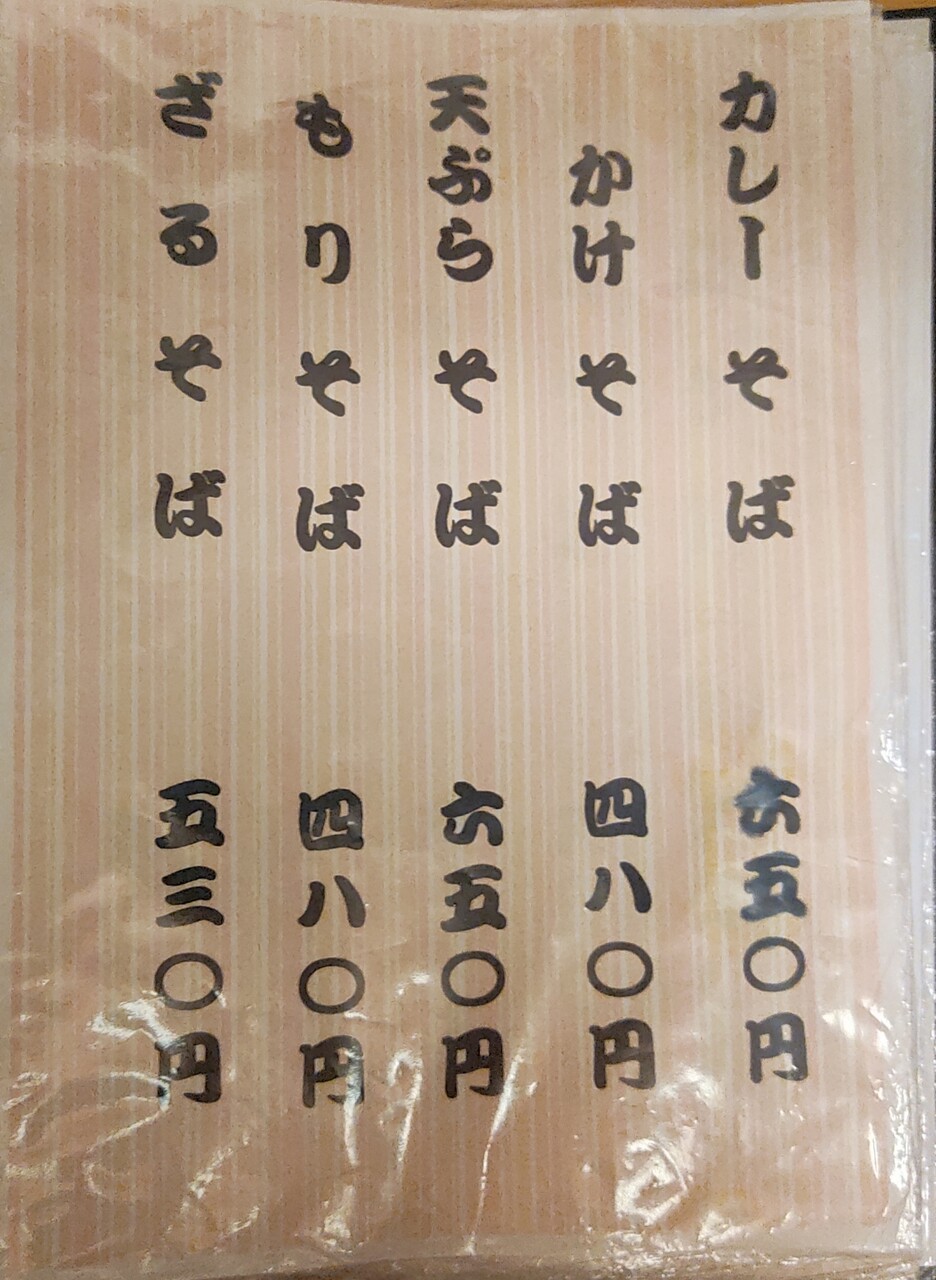 カレーそば 六五〇円
かけそば 四八〇円
天ぷらそば 六五〇円
もりそば 四八〇円
ざるそば 五三〇円